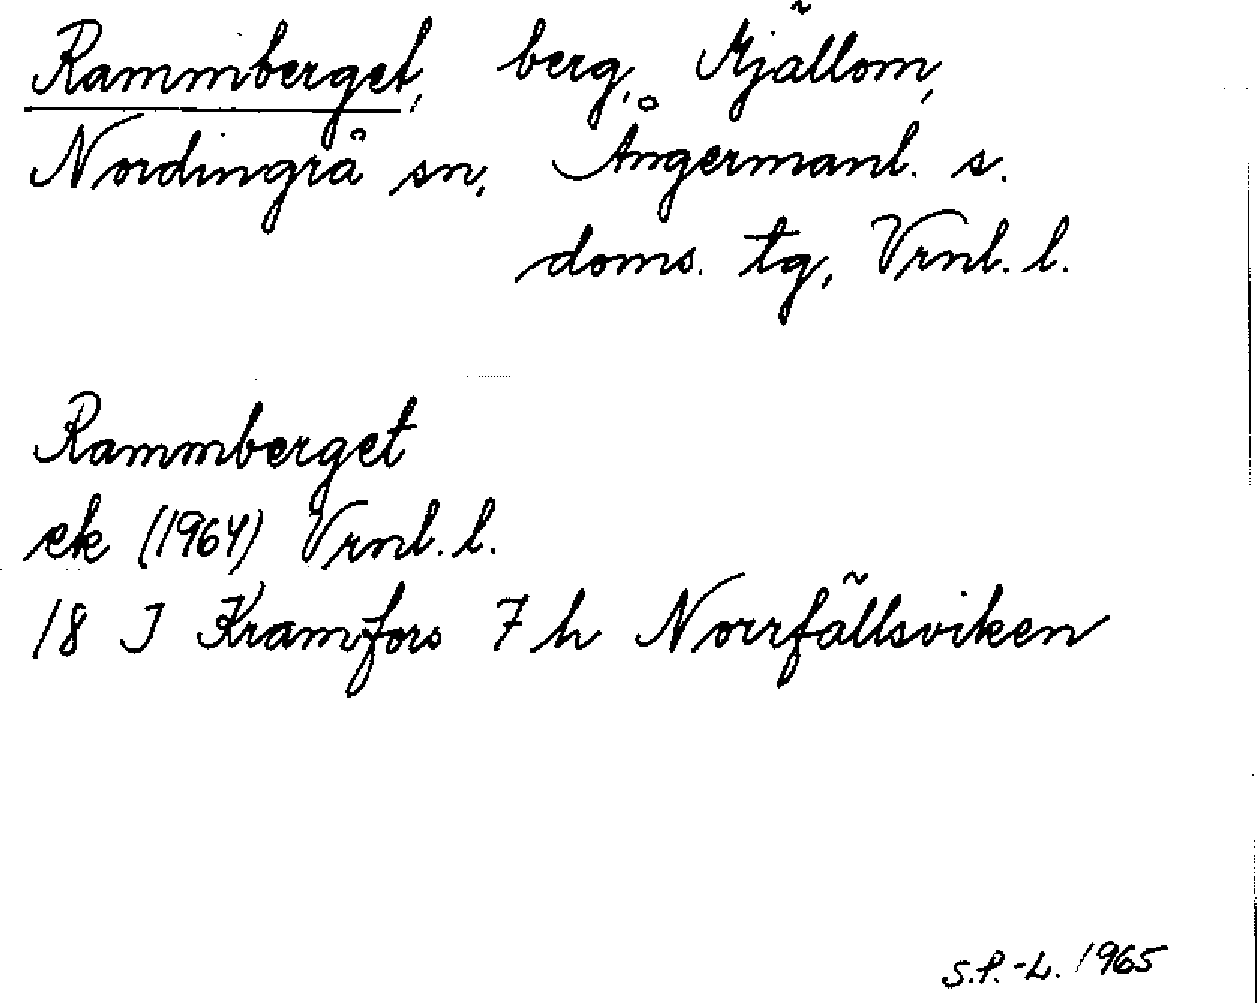 Rammberget, berg, Mjällom,
Nordingrå sn, Ångermanl. s.
doms. tg, Vrnl. l.
Rammberget
ek (1964) Vrnl. l.
18 J Kramfors 7 h Norrfällsviken
S.P.-L. 1965